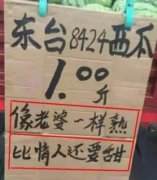 东台8424西瓜
1.00
斤
像老婆一样熟
比情人还要甜